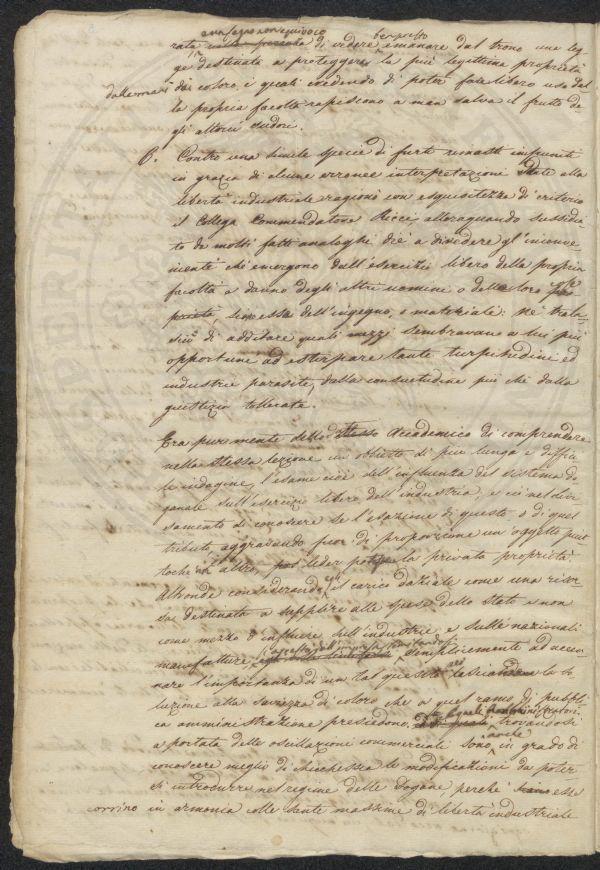 un segno non equivoco ben presto
rata di vedere emanare dal trono una leg-
ge destinata a proteggere la più legittima proprietà
dalle mani di coloro, i quali credendo di poter fare libero uso del-
la propria facoltà rapiscono a man salva il frutto de-
gli altrui sudori.
6. Contro una simile specie di furto rimasti impuniti
in grazia di alcune erronee interpretazioni date alla
libertà industriale ragionò con esquisitezza di criterio
il Collega Commendatore Ricci, allorquando sussidia-
to da molti fatti analoghi diè a divedere gl'inconve-
nienti ch'emergono dall'esercizio libero della propria
facoltà a danno degli altri uomini o delle loro
sien essa dell'ingegno, o materiali: nè trala-
sciò di additare quali mezzi sembravano a lui più
opportuni ad estirpare tante turpitudini ed
industrie parasite, dalla consuetudine più che dalla
giustizia tollerate.
Era pur mente dello stesso Accademico di comprendere
nella stessa lezione un obbietto di più lunga e diffici-
le indagine, l'esame cioè dell'influenza del sistema do-
ganale sull'esercizio libero dell'industria, e ciò nel divi-
samento di conoscere se l'esazione di questo o di quel
tributo, aggravando fuor di proporzione un oggetto piut-
tochè un altro, possa leder la privata proprietà.
Altronde considerando egli il carico daziale come una risor-
sa destinata a supplire alle spese dello Stato e non
come mezzo d'influire sull'industrie, e sulle nazionali
manifatture, semplicemente ad accen-
nare l'importanza di un tal quesito lasciando la so-
luzione alla saviezza di coloro che a quel ramo di pubbli-
ca amministrazione presiedono. trovandosi
a portata delle oscillazioni commerciali sono anche in grado di
conoscere meglio di chicchessia le modificazioni da poter-
si introdurre nel regime delle Dogane perchè esse
corrino in armonia colle sante massime di libertà industriale